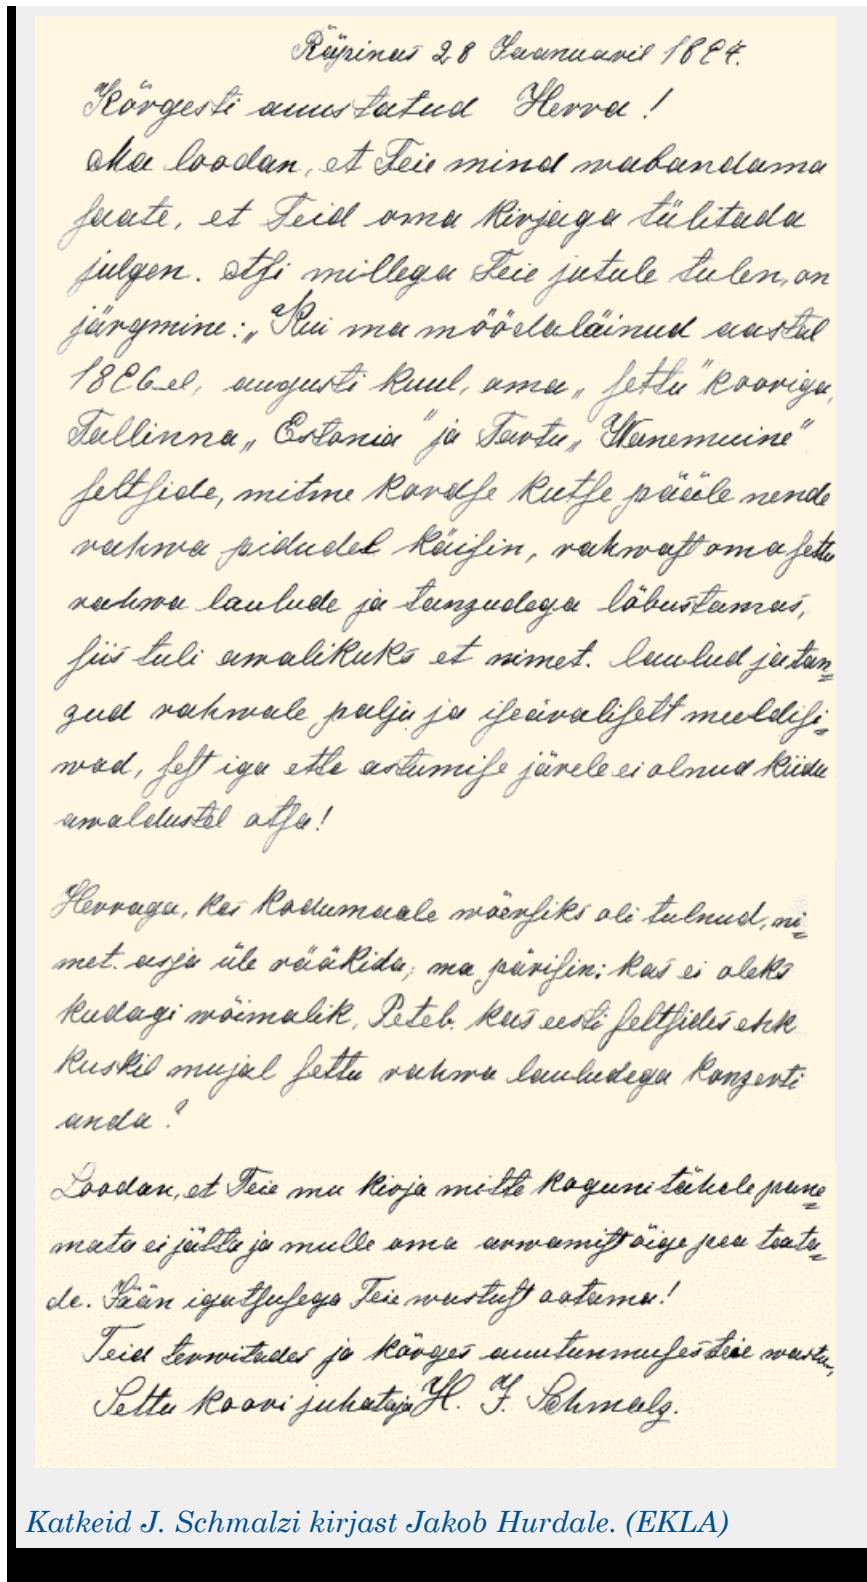 Räpinas 28 Jaanuaril 1897.
Kõrgesti auustatud Herra!
Ma loodan, et Teie mind wabandama
saate, et Teid oma kirjaga tülitada
julgen. Asi millega Teie jutule tulen, on
järgmine: „Kui ma möödaläinud aastal
1896-el, augusti kuul, oma „settu" kooriga,
Tallinna „Estonia" ja Tartu „Wanemuine"
seltside, mitme kordse kutse pääle nende
rahwa pidudel käisin, rahwast oma settu
rahwa laulude ja tanzudega lõbustamas,
siis tuli awalikuks et nimet. laulud ja tan=
zud rahwale palju ja iseäraliselt meeldisi=
wad, sest iga ette astumise järele ei olnud kiidu
awaldustel otsa!
Herraga, kes kodumaale wõersiks oli tulnud, ni=
met. asja üle rääkida; ma pärisin: kas ei oleks
kudagi wõimalik, Peteb. kas eesti seltsides ehk
kuskil mujal settu rahwa lauludega konzerti
anda?
Loodan, et Teie mu kirja mitte koguni tähele pane=
mata ei jätta ja mulle oma arwamist õige pea teata=
de. Jään igatsusega Teie wastust ootama!
Teid terwitades ja kõrges auutunmuses teie wastu,
Settu koori juhataja H. J. Schmalz.
Katkeid J. Schmalzi kirjast Jakob Hurdale. (EKLA)